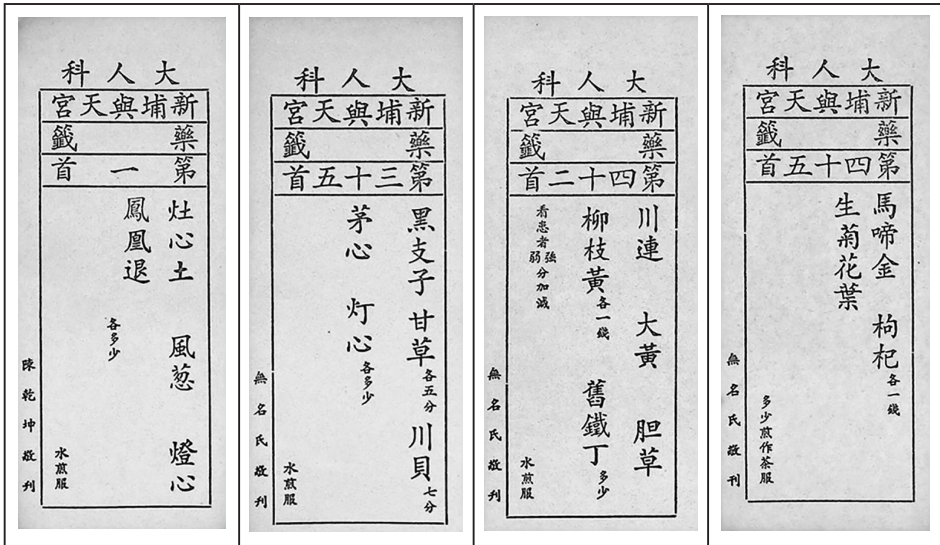 大人科
新埔與天宮
藥籤
第一首
灶心土 風葱 燈心
鳳凰退
各多少
水煎服
陳乾坤敬刊
大人科
新埔與天宮
藥籤
第三十五首
黑支子 甘草各五分 川貝七分
茅心 灯心各多少
水煎服
無名氏敬刊
大人科
新埔與天宮
藥籤
第四十二首
川連 大黃 胆草
柳枝黃各一錢 舊鐵丁多少
看患者強弱分加減
水煎服
無名氏敬刊
大人科
新埔與天宮
藥籤
第四十五首
馬啼金 枸杞各一錢
生菊花葉
多少煎作茶服
無名氏敬刊